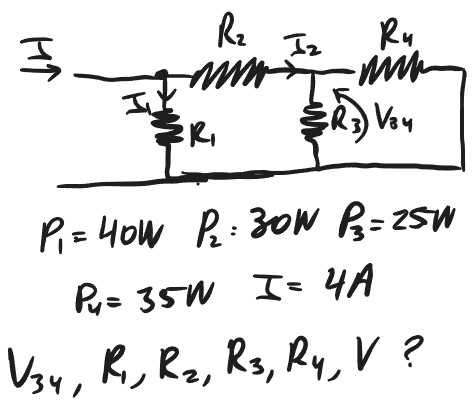 I R₂ I₂ R₄
I₁ R₁ R₃ V₃₄
P₁ = 40W P₂ : 30W P₃ = 25W
P₄ = 35W I = 4A
V₃₄, R₁, R₂, R₃, R₄, V ?